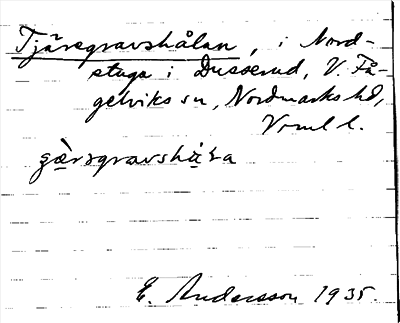 Tjäregravshålan, i Nord-
stuga i Dusserud, V. Få-
gelviks sn, Nordmarks hd,
Vrml l.
gæ̀rəgravshạ̀ɽa
E. Andersson 1935.